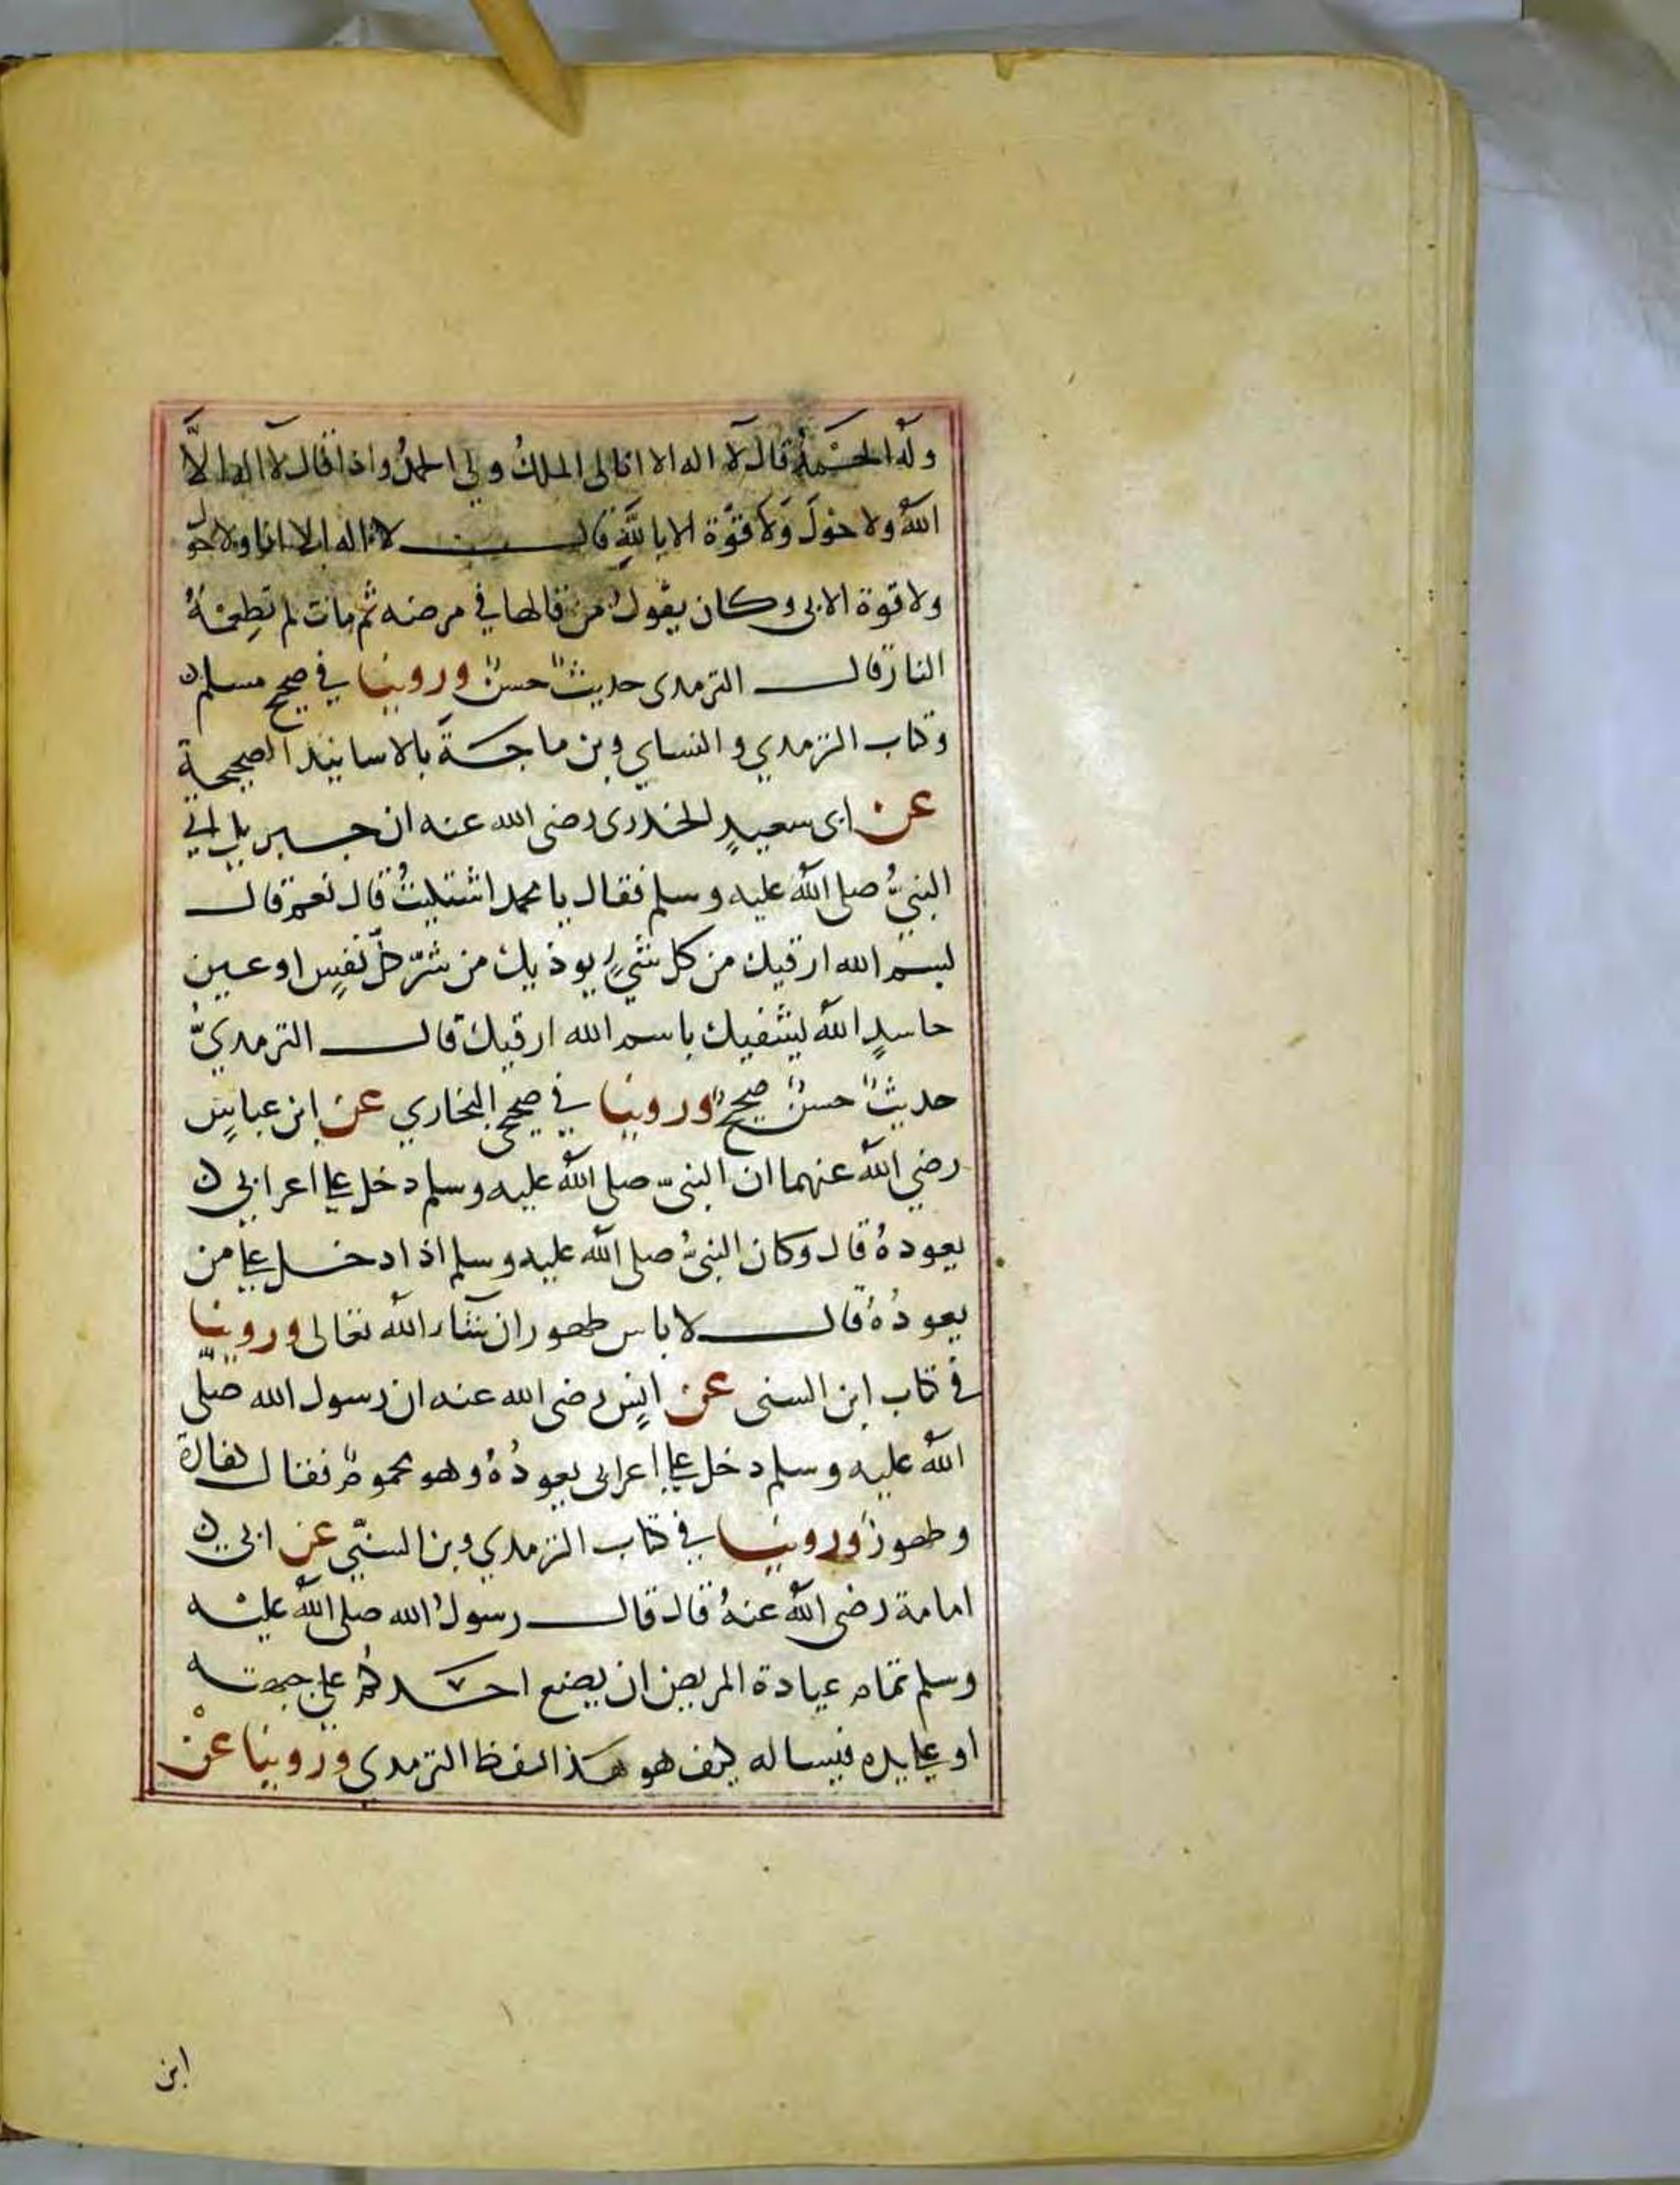 وله الحَمْدُ قال لا اله الا انا لي الملكُ ولي الحمدُ واذا قال لا اله الاَّ
اللهُ ولا حَوْلَ وَلا قوَّة الا باللهِ قال لا اله الا انا ولا حول
ولا قوة الا بي وكان يقول من قالها في مرضه ثم مات لم تطعمْهُ
النار قال الترمدى حديثٌ حسنٌ وروينا في صحيح مسلم
وكتاب الترمدي والنساي وبن ماجة بالاسانيد الصحيحة
عن ابى سعيدٍ الخدرى رضى الله عنه ان جبريل اتي
النبيَّ صلى اللهُ عليه وسلم فقال يا محمد اشتكيتُ قال نعم قال
بسم الله ارقيك من كل شيءٍ يوذيك من شرّ كلّ نفسٍ او عين
حاسدٍ اللهُ يشفيك باسم الله ارقيك قال الترمديُّ
حديثٌ حسنٌ صحيحٌ وروينا في صحيح البخاري عن ابن عباسٍ
رضي اللهُ عنهما ان النبىّ صلى اللهُ عليه وسلم دخل على اعرابي
يعودهُ قال وكان النبيُّ صلى اللهُ عليه وسلم اذا دخل على من
يعودُهُ قال لا باس طهور ان شاء اللهُ تعالى وروينا
في كتاب ابن السنى عن انسٍ رضى الله عنه ان رسول الله صلّى
اللهُ عليه وسلم دخل على اعرابى يعودُهُ وهو محمومٌ فقال كفارة
وطهورٌ وروينا في كتاب الترمدي وبن السنّي عن ابي
امامة رضى اللهُ عنهُ قال قال رسولُ الله صلى اللهُ عليْه
وسلم تمام عيادة المريض ان يضع احدكم على جبهته
او على يده فيساله كيف هو هذا لفظ الترمدى وروينا عنْ
ابن